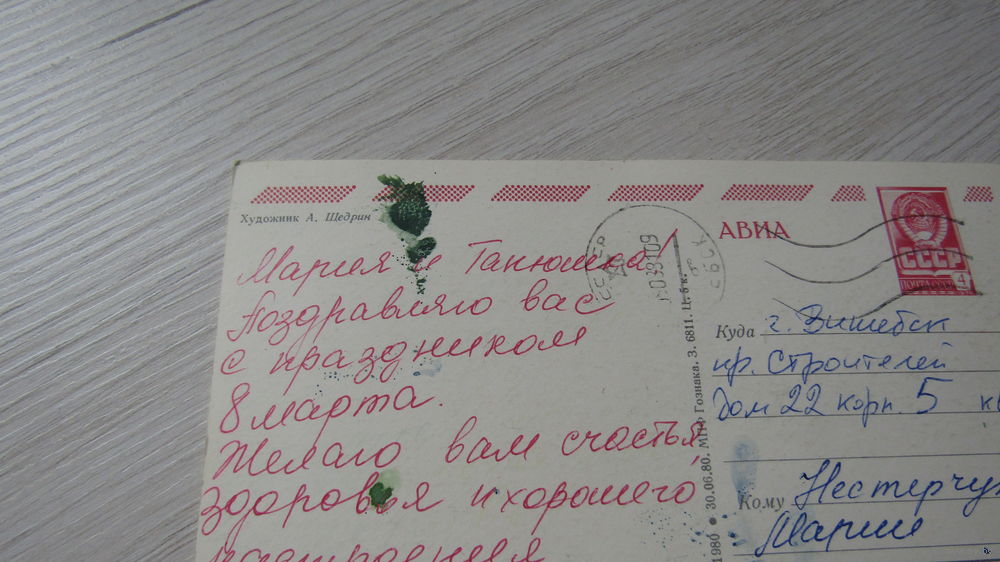 Художник А. Щедрин
Мария и Танюшка!
Поздравляю вас
с праздником
8 марта.
Желаю вам счастья,
здоровья и хорошего
настроения
1980 • 30.06.80. МПФ Гознака. З. 6811. Ц. 6 к.
СССР
АВИА
СССР
ПОЧТА
4
Куда г. Витебск
пр. Строителей
дом 22 корп. 5 кв
Кому Нестерчу
Марии